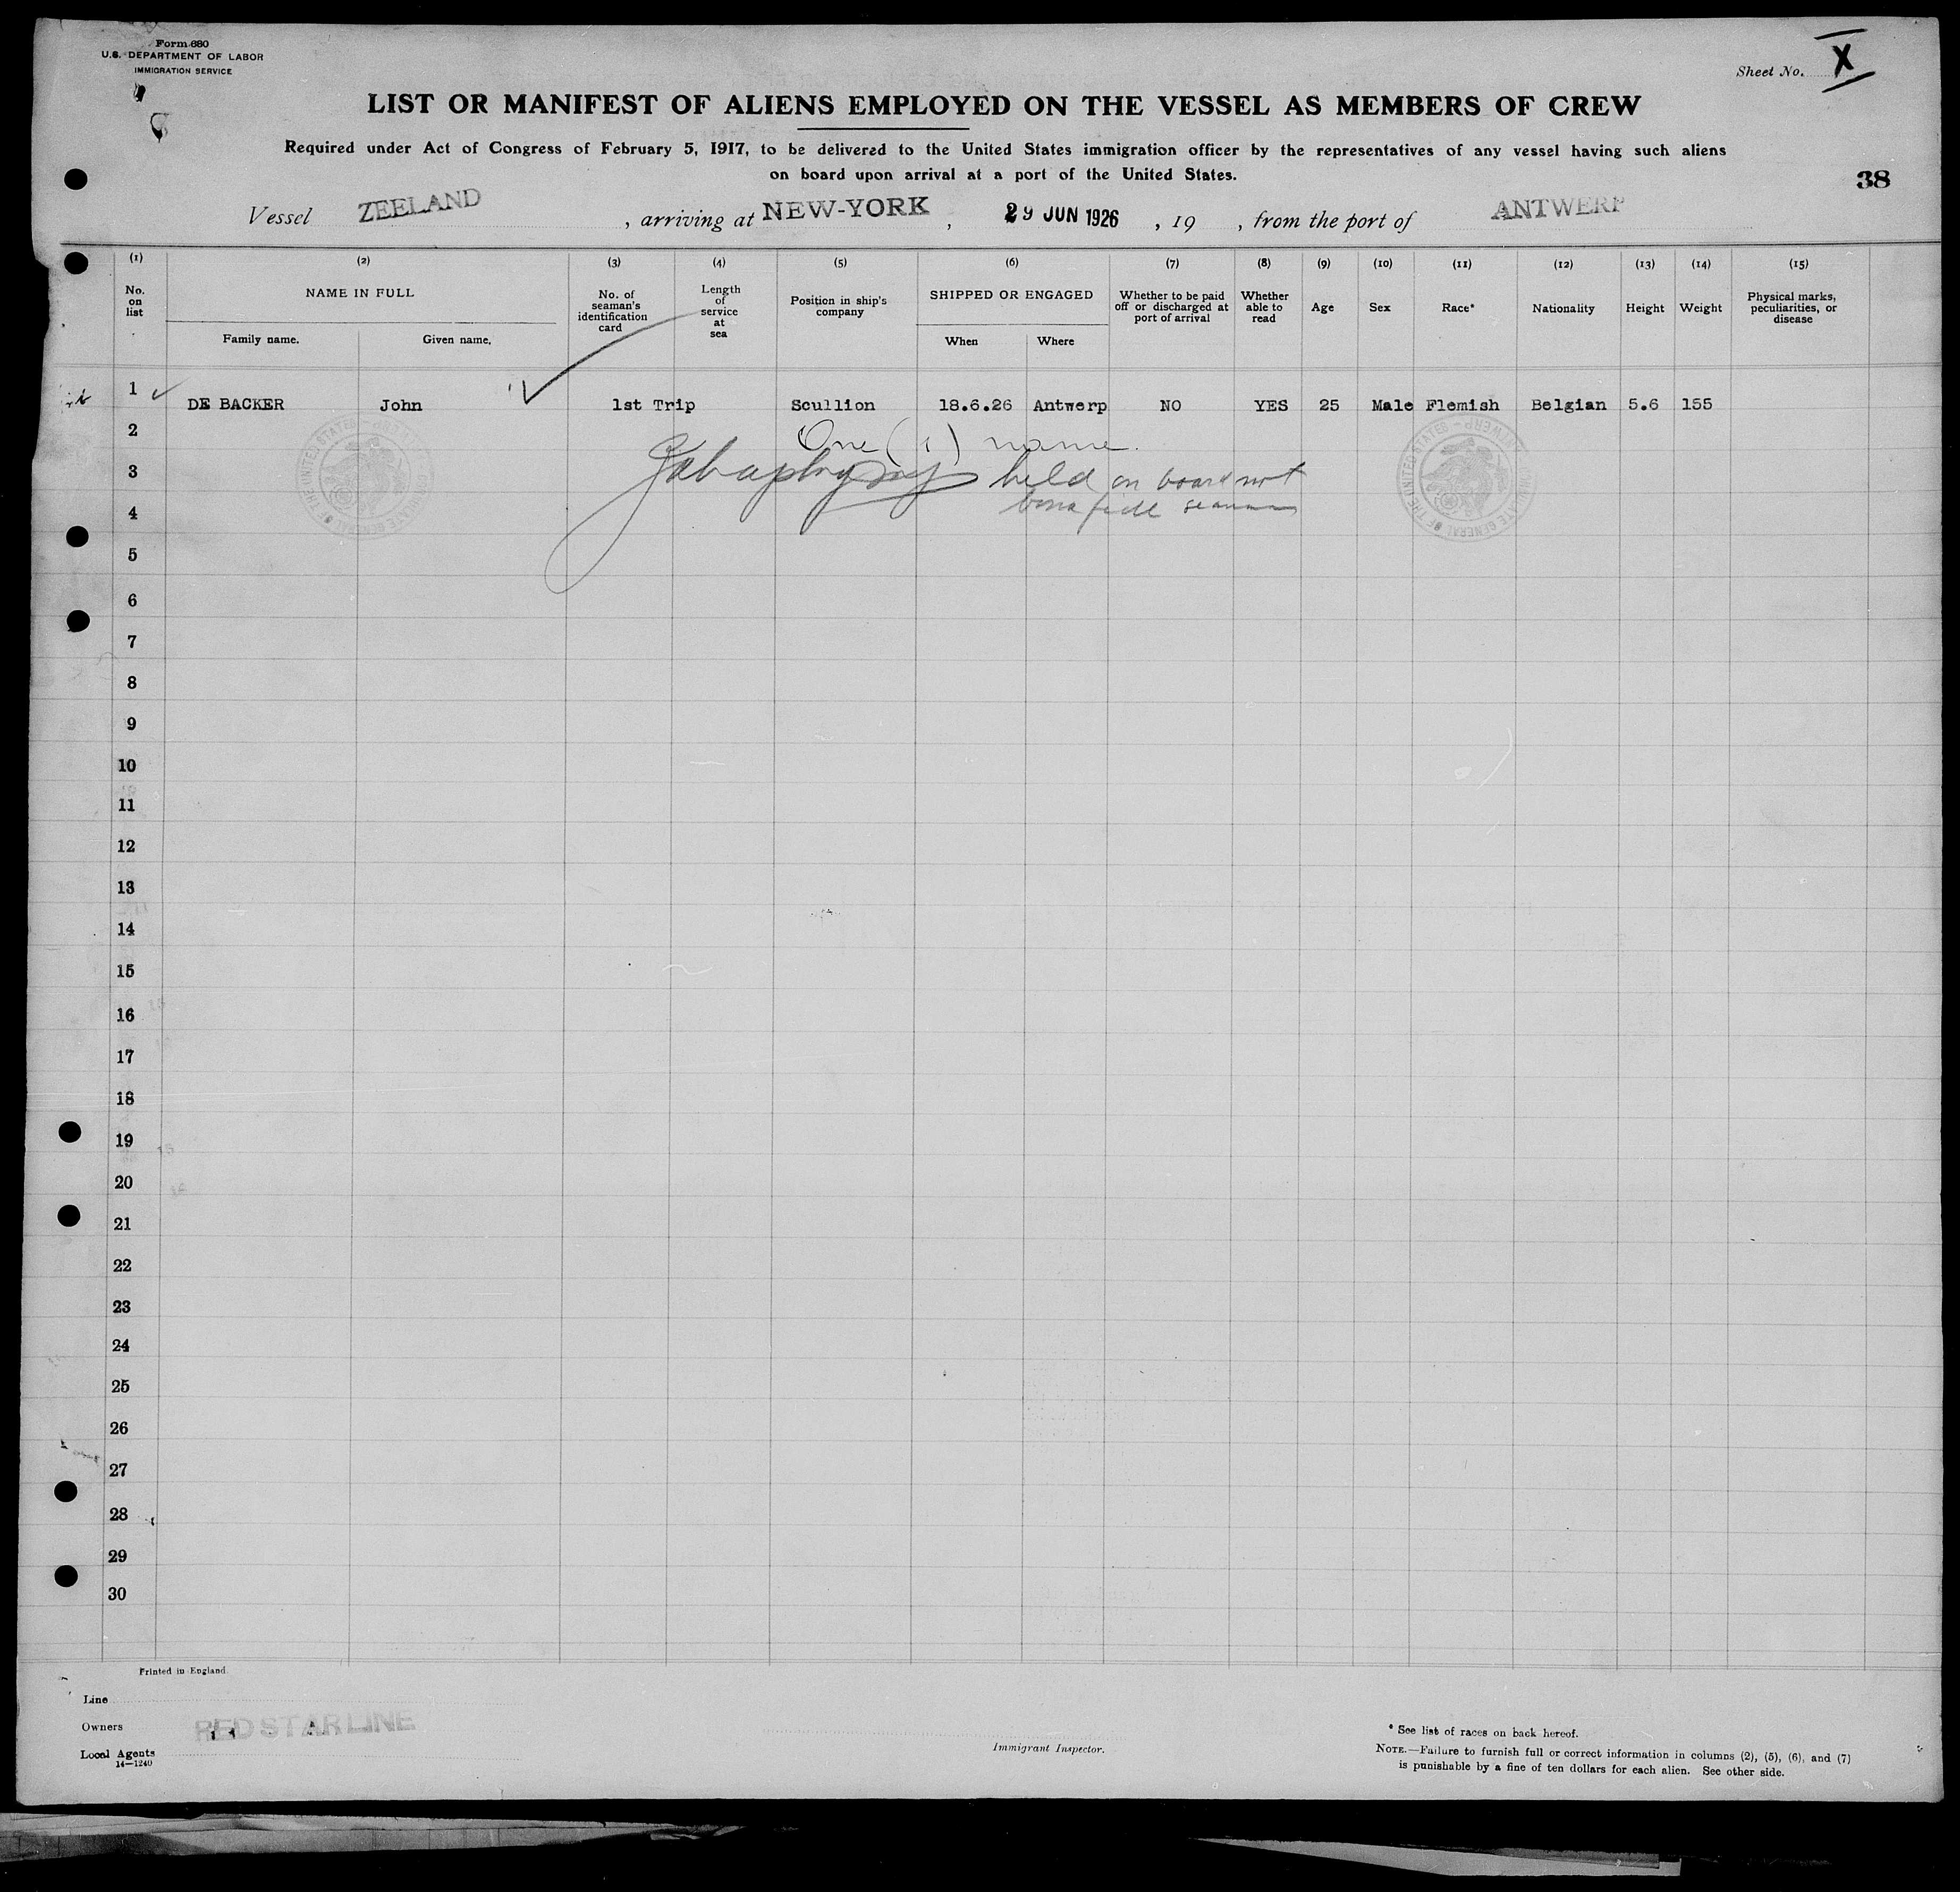 Form 680
U.S. DEPARTMENT OF LABOR
IMMIGRATION SERVICE
Sheet No. X
LIST OR MANIFEST OF ALIENS EMPLOYED ON THE VESSEL AS MEMBERS OF CREW
Required under Act of Congress of February 5, 1917, to be delivered to the United States immigration officer by the representatives of any vessel having such aliens
on board upon arrival at a port of the United States.
38
Vessel ZEELAND , arriving at NEW-YORK , 29 JUN 1926 , 19 , from the port of ANTWERP
(1) (2) (3) (4) (5) (6) (7) (8) (9) (10) (11) (12) (13) (14) (15)
No. on list
NAME IN FULL
Family name. Given name.
No. of seaman's identification card
Length of service at sea
Position in ship's company
SHIPPED OR ENGAGED
When Where
Whether to be paid off or discharged at port of arrival
Whether able to read
Age
Sex
Race*
Nationality
Height
Weight
Physical marks, peculiarities, or disease
1 DE BACKER John 1st Trip Scullion 18.6.26 Antwerp NO YES 25 Male Flemish Belgian 5.6 155
2 One (1) name.
3 held on board not
4 bona fide seaman
5
6
7
8
9
10
11
12
13
14
15
16
17
18
19
20
21
22
23
24
25
26
27
28
29
30
Printed in England.
Line
Owners RED STAR LINE
Local Agents
14—1240
Immigrant Inspector.
* See list of races on back hereof.
NOTE.—Failure to furnish full or correct information in columns (2), (5), (6), and (7)
is punishable by a fine of ten dollars for each alien. See other side.